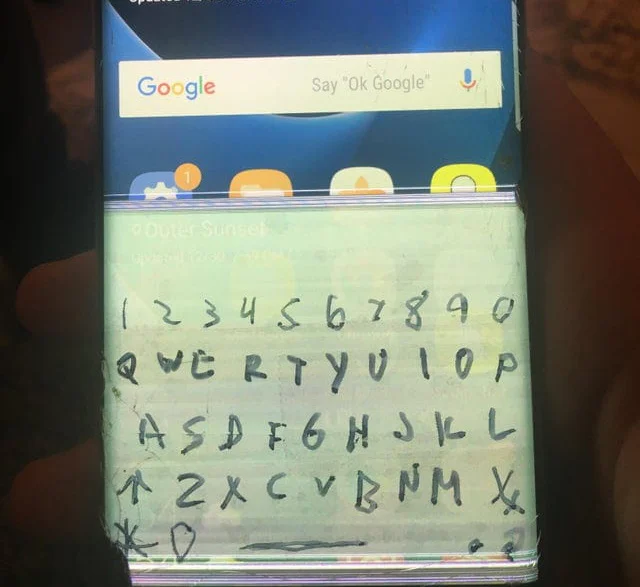 Google Say "Ok Google"
1
Outer Sunset
1 2 3 4 5 6 7 8 9 0
Q W E R T Y U I O P
A S D F G H J K L
↑ Z X C V B N M X